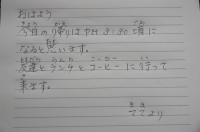 おはよう
今日の帰りはPM 8:30頃に
なると思います。
友達とランチとコーヒーに行って
来ます。
ママより